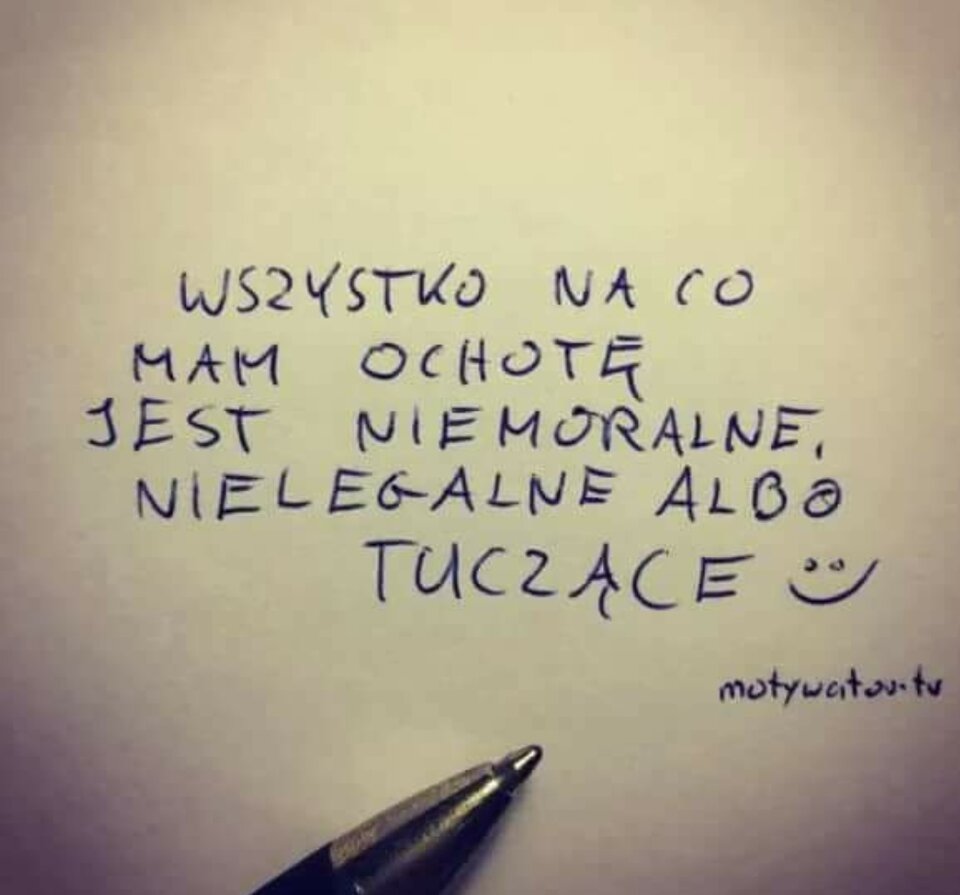 WSZYSTKO NA CO
MAM OCHOTĘ
JEST NIEMORALNE,
NIELEGALNE ALBO
TUCZĄCE
motywator.tv